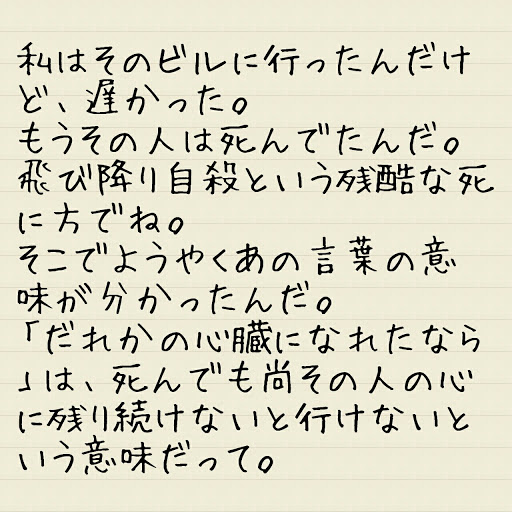 私はそのビルに行ったんだけ
ど、遅かった。
もうその人は死んでたんだ。
飛び降り自殺という残酷な死
に方でね。
そこでようやくあの言葉の意
味が分かったんだ。
「だれかの心臓になれたなら
」は、死んでも尚その人の心
に残り続けないと行けないと
いう意味だって。